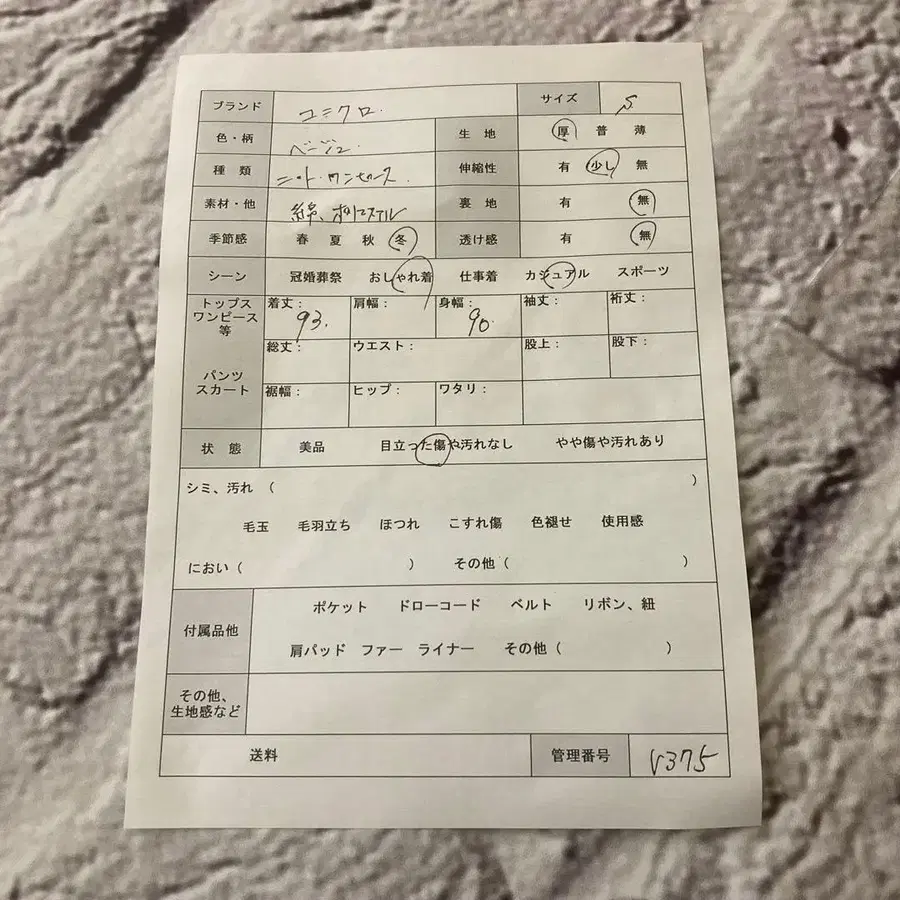 ブランド ユニクロ. サイズ S
色・柄 ベージュ. 生地 厚 普 薄
種類 ニット・ワンピース. 伸縮性 有 少し 無
素材・他 綿、ポリエステル 裏地 有 無
季節感 春 夏 秋 冬 透け感 有 無
シーン 冠婚葬祭 おしゃれ着 仕事着 カジュアル スポーツ
トップス
ワンピース
等
着丈: 93. 肩幅: 身幅: 90 袖丈: 裄丈:
パンツ
スカート
総丈: ウエスト: 股上: 股下:
裾幅: ヒップ: ワタリ:
状態 美品 目立った傷や汚れなし やや傷や汚れあり
シミ、汚れ ( )
毛玉 毛羽立ち ほつれ こすれ傷 色褪せ 使用感
におい ( ) その他 ( )
付属品他 ポケット ドローコード ベルト リボン、紐
肩パッド ファー ライナー その他 ( )
その他、
生地感など
送料 管理番号 V375